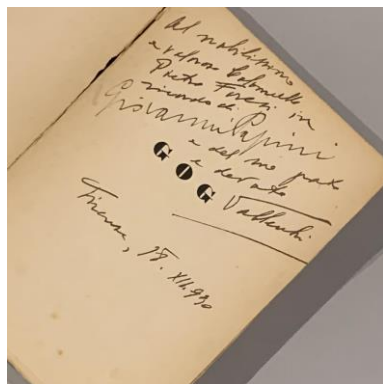 Al nobilissimo
e valoroso Colonnello
Pietro Foresi in
ricordo di
Giovanni Papini
e del suo
e devoto
GOG Vallecchi
Firenze, 18. XII. 930